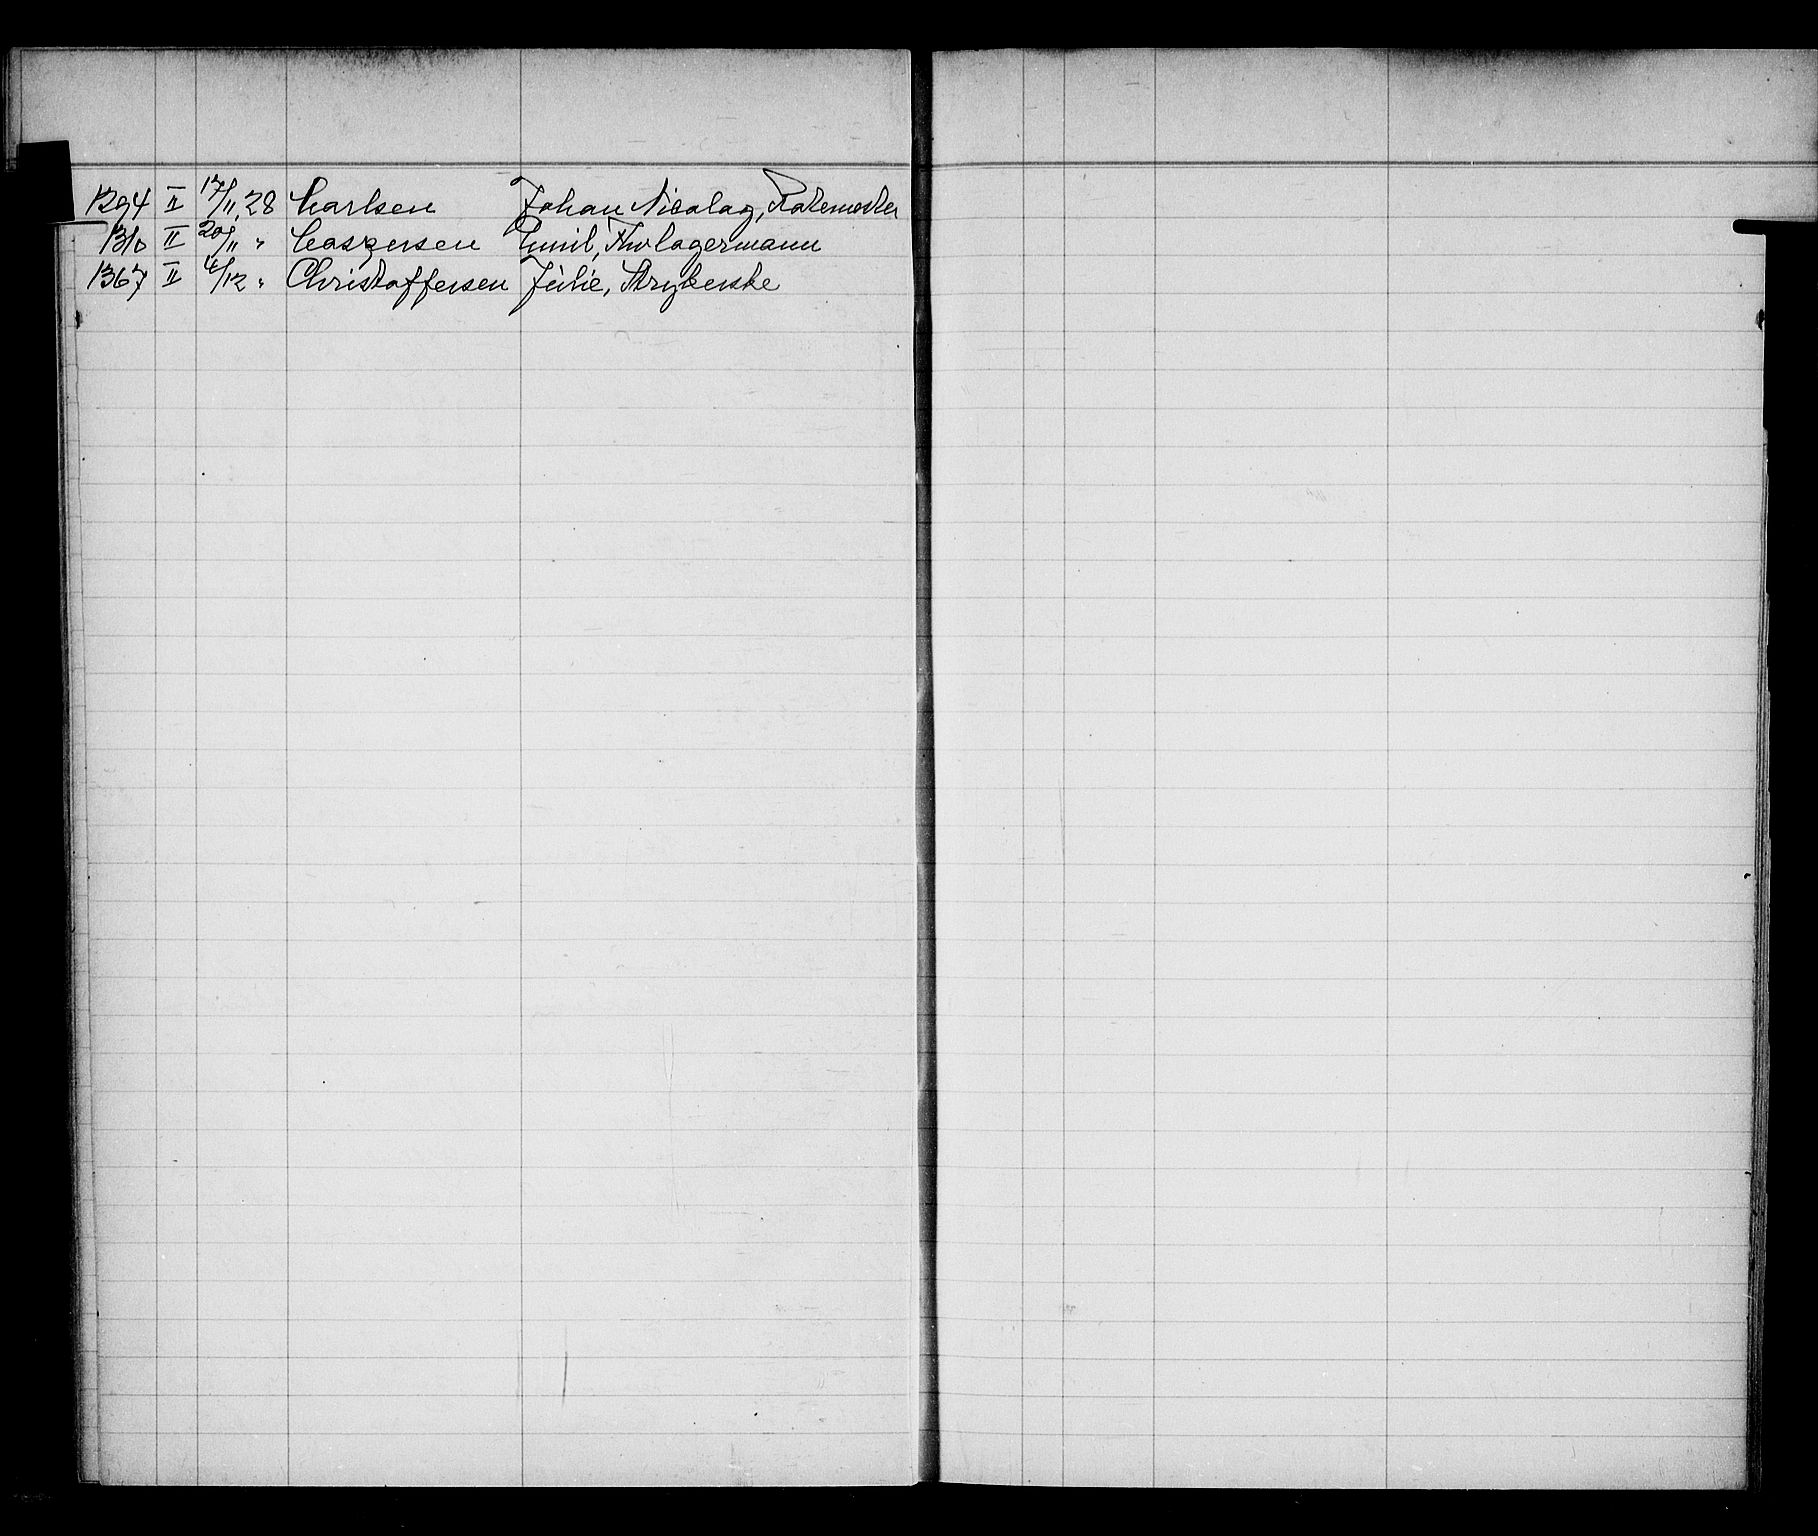 1294 II 17/11, 28 Carlsen Johan Nicolay, Rodemester
1310 II 20/11 " Caspersen Emil, Fhv lagermann
1367 II 4/12 " Christoffersen Julie, Strykerske